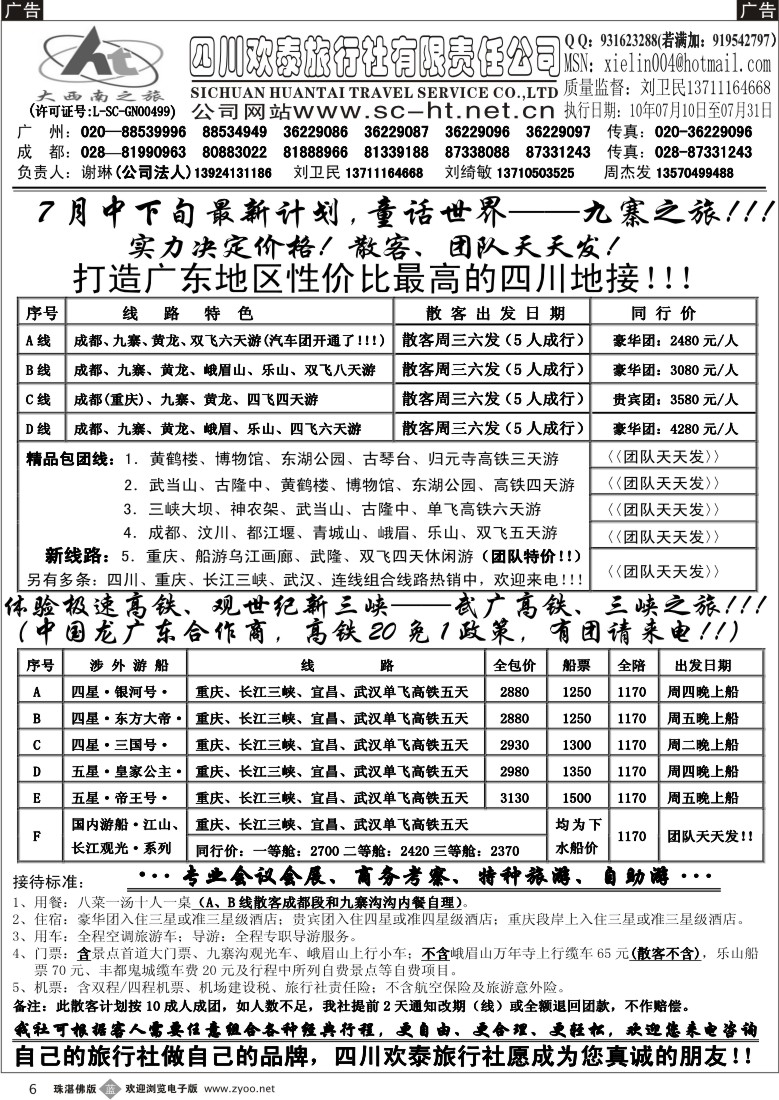 广告
广告
大西南之旅
(许可证号:L-SC-GN00499)
四川欢泰旅行社有限责任公司
SICHUAN HUANTAI TRAVEL SERVICE CO.,LTD
公司网站www.sc-ht.net.cn
QQ: 931623288(若满加: 919542797)
MSN: xielin004@hotmail.com
质量监督: 刘卫民13711164668
执行日期: 10年07月10日至07月31日
广 州: 020—88539996 88534949 36229086 36229087 36229096 36229097 传真: 020-36229096
成 都: 028—81990963 80883022 81888966 81339188 87338088 87331243 传真: 028-87331243
负责人: 谢琳(公司法人)13924131186 刘卫民 13711164668 刘绮敏 13710503525 周杰发 13570499488
7月中下旬最新计划,童话世界——九寨之旅!!!
实力决定价格! 散客、团队天天发!
打造广东地区性价比最高的四川地接!!!
序号 线 路 特 色 散 客 出 发 日 期 同 行 价
A线 成都、九寨、黄龙、双飞六天游(汽车团开通了!!!) 散客周三六发(5人成行) 豪华团: 2480 元/人
B线 成都、九寨、黄龙、峨眉山、乐山、双飞八天游 散客周三六发(5人成行) 豪华团: 3080 元/人
C线 成都(重庆)、九寨、黄龙、四飞四天游 散客周三六发(5人成行) 贵宾团: 3580 元/人
D线 成都、九寨、黄龙、峨眉、乐山、四飞六天游 散客周三六发(5人成行) 豪华团: 4280 元/人
精品包团线: 1. 黄鹤楼、博物馆、东湖公园、古琴台、归元寺高铁三天游 〈〈团队天天发〉〉
2. 武当山、古隆中、黄鹤楼、博物馆、东湖公园、高铁四天游 〈〈团队天天发〉〉
3. 三峡大坝、神农架、武当山、古隆中、单飞高铁六天游 〈〈团队天天发〉〉
4. 成都、汶川、都江堰、青城山、峨眉、乐山、双飞五天游 〈〈团队天天发〉〉
新线路: 5. 重庆、船游乌江画廊、武隆、双飞四天休闲游(团队特价!!)
另有多条: 四川、重庆、长江三峡、武汉、连线组合线路热销中,欢迎来电!!! 〈〈团队天天发〉〉
体验极速高铁、观世纪新三峡——武广高铁、三峡之旅!!!
(中国龙广东合作商,高铁20免1政策,有团请来电!!)
序号 涉 外 游 船 线 路 全包价 船票 全陪 出发日期
A 四星·银河号· 重庆、长江三峡、宜昌、武汉单飞高铁五天 2880 1250 1170 周四晚上船
B 四星·东方大帝· 重庆、长江三峡、宜昌、武汉单飞高铁五天 2880 1250 1170 周五晚上船
C 四星·三国号· 重庆、长江三峡、宜昌、武汉单飞高铁五天 2930 1300 1170 周二晚上船
D 五星·皇家公主· 重庆、长江三峡、宜昌、武汉单飞高铁五天 2980 1350 1170 周四晚上船
E 五星·帝王号· 重庆、长江三峡、宜昌、武汉单飞高铁五天 3130 1500 1170 周五晚上船
F 国内游船·江山、长江观光·系列 重庆、长江三峡、宜昌、武汉单飞高铁五天 均为下水船价 1170 团队天天发!!
同行价: 一等舱: 2700 二等舱: 2420 三等舱: 2370
···专业会议会展、商务考察、特种旅游、自助游···
接待标准:
1、用餐: 八菜一汤十人一桌(A、B线散客成都段和九寨沟沟内餐自理)。
2、住宿: 豪华团入住三星或准三星级酒店; 贵宾团入住四星或准四星级酒店; 重庆段岸上入住三星或准三星级酒店。
3、用车: 全程空调旅游车; 导游: 全程专职导游服务。
4、门票: 含景点首道大门票、九寨沟观光车、峨眉山上行小车; 不含峨眉山万年寺上行缆车 65 元(散客不含), 乐山船
票 70 元、丰都鬼城缆车费 20 元及行程中所列自费景点等自费项目。
5、机票: 含双程/四程机票、机场建设税、旅行社责任险; 不含航空保险及旅游意外险。
备注: 此散客计划按 10 成人成团, 如人数不足, 我社提前 2 天通知改期(线)或全额退回团款, 不作赔偿。
我社可根据客人需要任意组合各种经典行程, 更自由、更合理、更轻松, 欢迎您来电咨询
自己的旅行社做自己的品牌, 四川欢泰旅行社愿成为您真诚的朋友!!
6 珠湛佛版 蓝 欢迎浏览电子版 www.zyoo.net